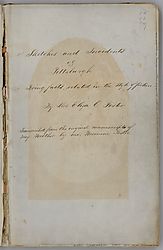 Sketches and Incidents
of
Pittsburgh
Being facts related in the style of fiction
By Mrs Eliza C. Foster
Transcribed from the original manuscripts of
my Mother by me, Morrison Foster